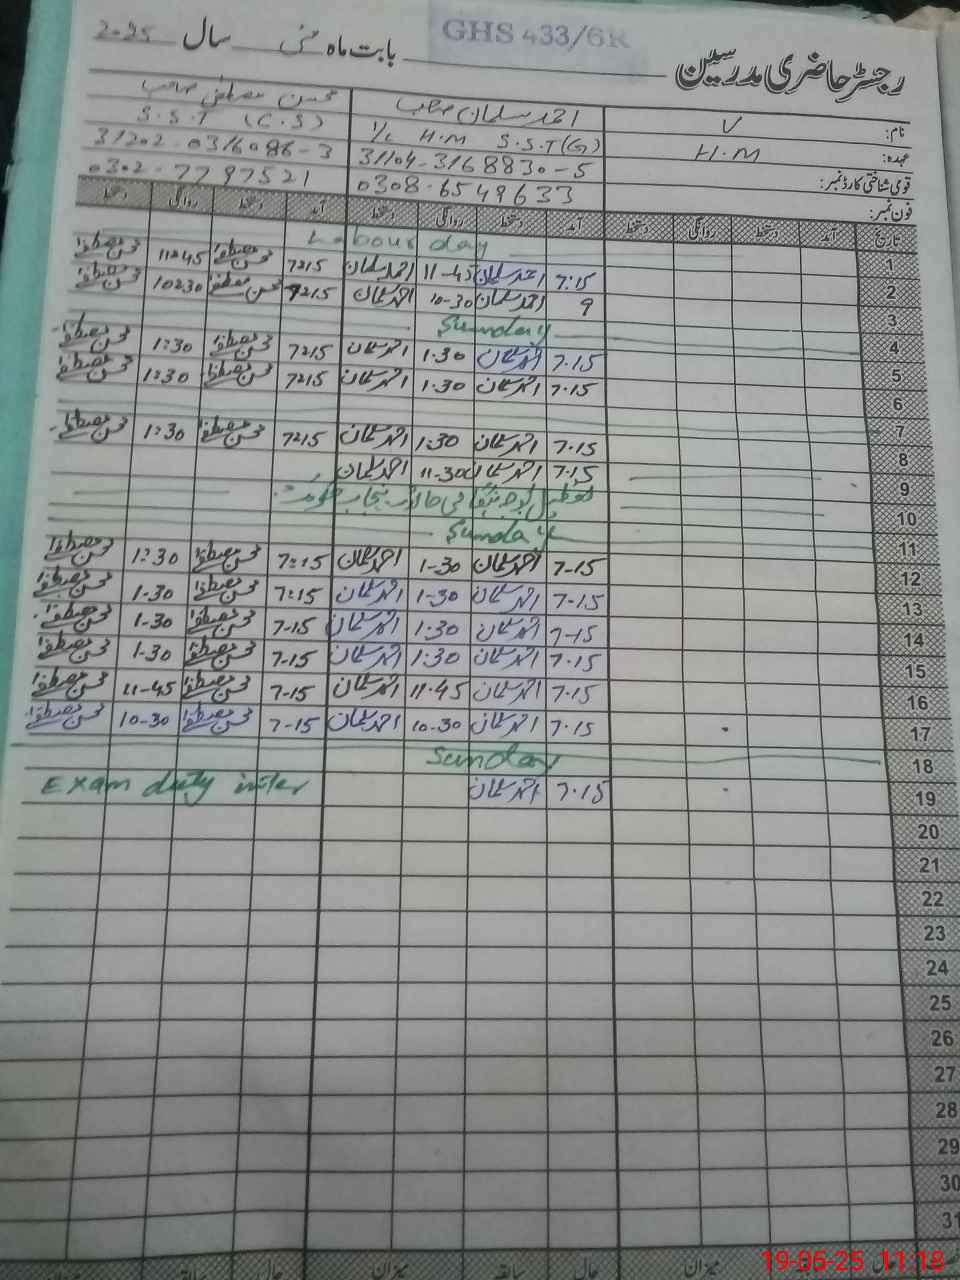 GHS 433/6R
رجسٹر حاضری مدرسین بابت ماہ مئی سال 2025
نام: V احمد سلمان صاحب محسن مصطفیٰ صاحب
عہدہ: H.M I/C H.M S.S.T(G) S.S.T (C.S)
قومی شناختی کارڈ نمبر: 31104-3168830-5 31202-0316086-3
فون نمبر: 0308-6549633 0302-7797521
تاریخ آمد دستخط روانگی دستخط آمد دستخط روانگی دستخط آمد دستخط روانگی دستخط
1 Labour day
2 7:15 احمد سلمان 11-45 احمد سلمان 7:15 محسن مصطفیٰ 11:45 محسن مصطفیٰ
3 9 احمد سلمان 10-30 احمد سلمان 7:15 محسن مصطفیٰ 10:30 محسن مصطفیٰ
4 Sunday
5 7.15 احمد سلمان 1.30 احمد سلمان 7:15 محسن مصطفیٰ 1:30 محسن مصطفیٰ
6 7.15 احمد سلمان 1.30 احمد سلمان 7:15 محسن مصطفیٰ 1:30 محسن مصطفیٰ
7
8 7.15 احمد سلمان 1:30 احمد سلمان 7:15 محسن مصطفیٰ 1:30 محسن مصطفیٰ
9 7.15 احمد سلمان 11-30 احمد سلمان
10 تعطیل بوجہ
11 Sunday
12 7-15 احمد سلمان 1-30 احمد سلمان 7:15 محسن مصطفیٰ 1:30 محسن مصطفیٰ
13 7-15 احمد سلمان 1-30 احمد سلمان 7:15 محسن مصطفیٰ 1-30 محسن مصطفیٰ
14 7-15 احمد سلمان 1.30 احمد سلمان 7-15 محسن مصطفیٰ 1-30 محسن مصطفیٰ
15 7.15 احمد سلمان 1:30 احمد سلمان 7-15 محسن مصطفیٰ 1-30 محسن مصطفیٰ
16 7.15 احمد سلمان 11.45 احمد سلمان 7-15 محسن مصطفیٰ 11-45 محسن مصطفیٰ
17 7.15 احمد سلمان 10-30 احمد سلمان 7-15 محسن مصطفیٰ 10-30 محسن مصطفیٰ
18 Sunday
19 7.15 احمد سلمان Exam duty inter
20
21
22
23
24
25
26
27
28
29
30
31
میزان حال سابقہ میزان حال
19-05-25 11:18